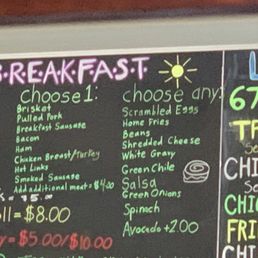 B·R·E·A·K·F·A·S·T
Choose 1:
Brisket
Pulled Pork
Breakfast Sausage
Bacon
Ham
Chicken Breast/Turkey
Hot Links
Smoked Sausage
Add additional meat + $4.00
choose any:
Scrambled Eggs
Home Fries
Beans
Shredded Cheese
White Gravy
Green Chile
Salsa
Green Onions
Spinach
Avocado +2.00
= $8.00
= $5.00/$10.00
L
67
CHI
CHI
FRI
CHI